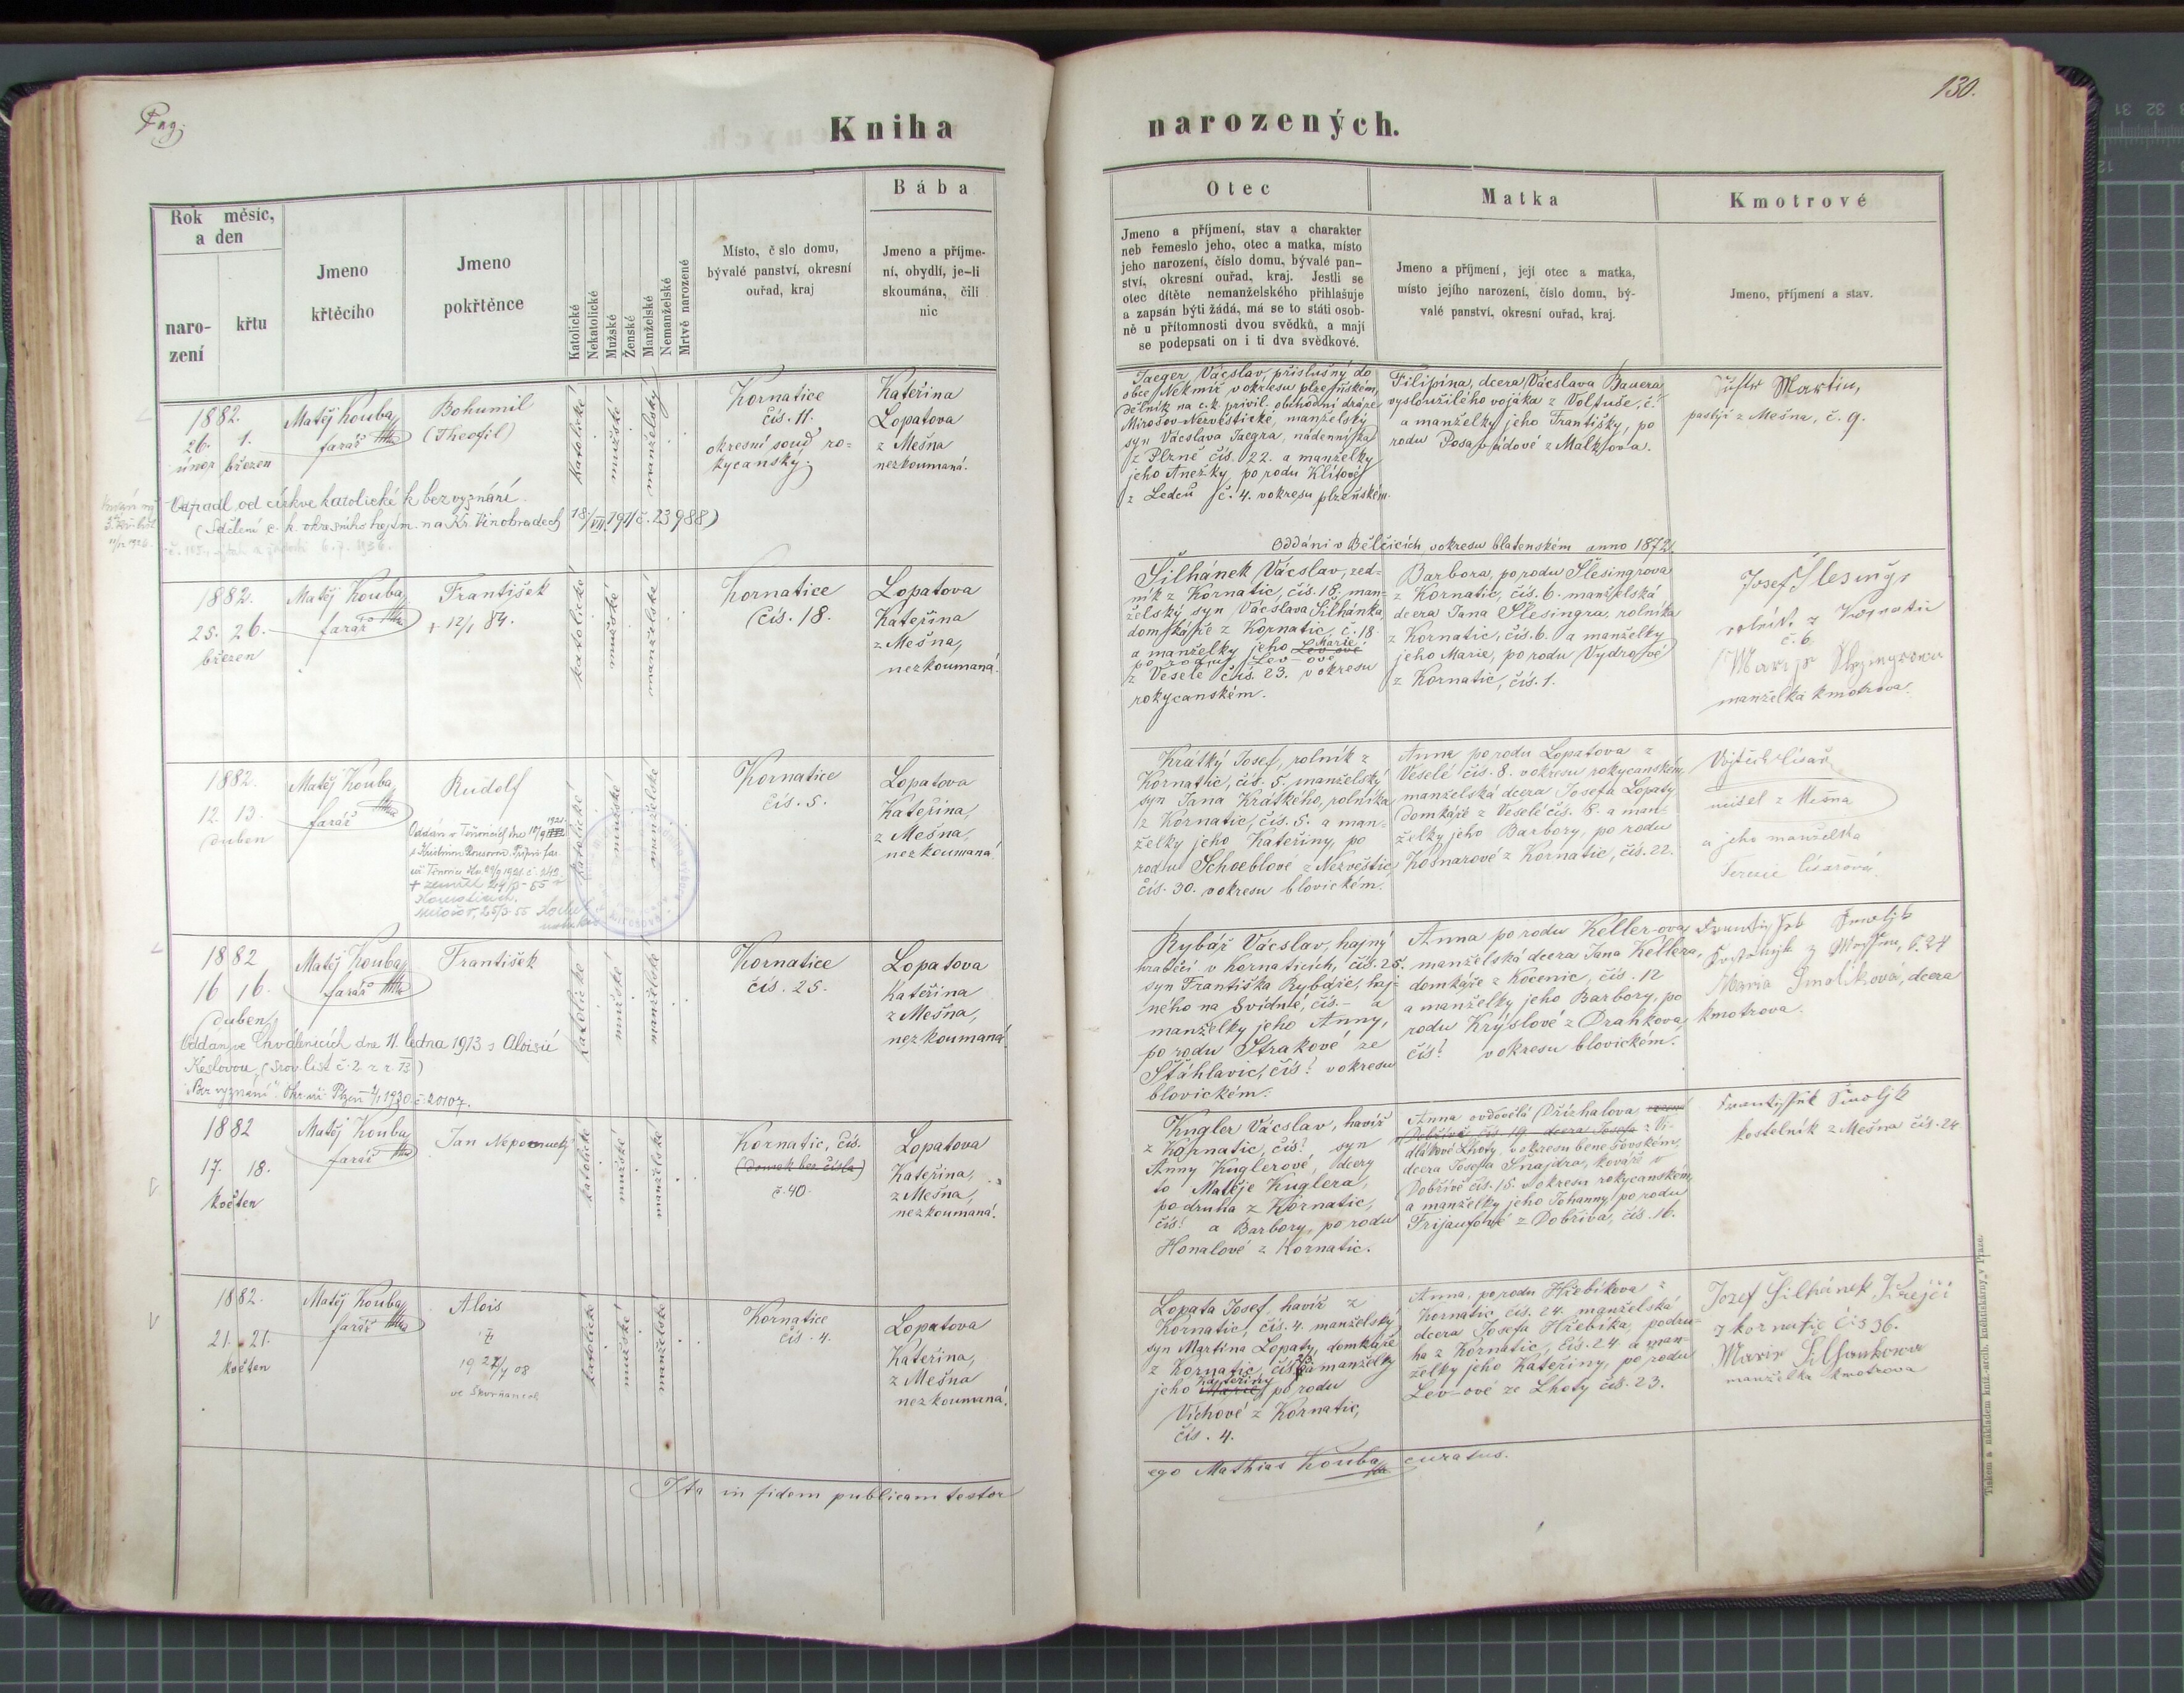 Pag.
130.
Kniha narozených.
Rok měsíc,
a den
naro-
zení
křtu
Jmeno
křtěcího
Jmeno
pokřtěnce
Katolické
Nekatolické
Mužské
Ženské
Manželské
Nemanželské
Mrtvě narozené
Místo, č slo domu,
bývalé panství, okresní
ouřad, kraj
Bába
Jmeno a příjme-
ní, obydlí, je-li
skoumána, čili
nic
Otec
Jmeno a příjmení, stav a charakter
neb řemeslo jeho, otec a matka, místo
jeho narození, číslo domu, bývalé pan-
ství, okresní ouřad, kraj. Jestli se
otec dítěte nemanželského přihlašuje
a zapsán býti žádá, má se to státi osob-
ně u přítomnosti dvou svědků, a mají
se podepsati on i ti dva svědkové.
Matka
Jmeno a příjmení, její otec a matka,
místo jejího narození, číslo domu, bý-
valé panství, okresní ouřad, kraj.
Kmotrové
Jmeno, příjmení a stav.
1882.
26. 1.
únor březen
Matěj Kouba
farář
Bohumil
(Theofil)
katolické
mužské
manželský
Kornatice
čís. 11.
okresní soud ro-
kycanský.
Kateřina
Lopatova
z Mešna
nezkoumaná.
Jaeger Vácslav, příslušný do
obce Nekmíř v okresu plzeňském,
dělník na c. k. privil. obchodní dráze
Mirošov-Nezvěstické, manželský
syn Vácslava Jaegra, nádenníka
z Plzně čís. 22. a manželky
jeho Anežky po rodu Klitové
z Ledců č. 4. v okresu plzeňském.
Filipína, dcera Vácslava Bauera
vysloužilého vojáka z Voltuše, č.
a manželky jeho Františky, po
rodu
Martin,
z Mešna, č. 9.
Odpadl od církve katolické k bez vyznání
(Sdělení c. k. okresního hejtm. na Kr. Vinohradech 18/VII 1911 č. 23988)
Oddáni v Bělčicích, v okresu blatenském anno 1872.
1882.
25. 26.
březen
Matěj Kouba
farář
František
+ 12/1 84.
katolické
mužské
manželské
Kornatice
čís. 18.
Lopatova
Kateřina
z Mešna,
nezkoumaná.
Šilhánek Vácslav, zed-
ník z Kornatic, čís. 18. man-
želský syn Vácslava Šilhánka,
domkáře z Kornatic, č. 18
a manželky jeho Marie
po rodu Lev-ové
z Veselé čís. 23. v okresu
rokycanském.
Barbora, po rodu Šlesingrova
z Kornatic, čís. 6. manželská
dcera Jana Šlesingra, rolníka
z Kornatic, čís. 6. a manželky
jeho Marie, po rodu Vydrové
z Kornatic, čís. 1.
Josef Šlesingr
rolník z Kornatic
č. 6
manželka kmotrova.
1882.
12. 13.
duben
Matěj Kouba
farář
Rudolf
katolické
mužské
manželské
Kornatice
čís. 5.
Lopatova
Kateřina,
z Mešna,
nezkoumaná
Krátký Josef, rolník z
Kornatic, čís. 5. manželský
syn Jana Krátkého, rolníka
z Kornatic, čís. 5. a man-
želky jeho Kateřiny, po
rodu Schoeblové z Nezvěstic
čís. 30. v okresu blovickém.
Anna po rodu Lopatova z
Veselé čís. 8. v okresu rokycanském,
manželská dcera Josefa Lopaty
domkáře z Veselé čís. 8. a man-
želky jeho Barbory, po rodu
Košnarové z Kornatic, čís. 22.
z Mešna
a jeho manželka
1882
16 16.
duben
Matěj Kouba
farář
František
katolické
mužské
manželské
Kornatice
čís. 25.
Lopatova
Kateřina
z Mešna,
nezkoumaná
Rybář Vácslav, hajný
hraběcí v Kornaticích, čís. 25.
syn Františka Rybáře, haj-
ného na Svidné, čís. - a
manželky jeho Anny,
po rodu Strakové ze
Štáhlavic, čís? v okresu
blovickém.
Anna po rodu Keller-ova,
manželská dcera Jana Kellera,
domkáře z Kocenic, čís. 12
a manželky jeho Barbory, po
rodu Krýslové z Drahkova,
čís? v okresu blovickém.
František Smolík
č. 24
Maria Smolíková, dcera
kmotrova.
Oddán ve Chválenicích dne 11. ledna 1913 s Aloisií
Keslovou, (Srov. list č. 2 z r. 13)
"Bez vyznání". Okr. úř. Plzeň 4/1 1930. č. 20107.
1882
17. 18.
květen
Matěj Kouba
farář
Jan Nepomucký
katolické
mužské
manželské
Kornatic, čís.
(domek bez čísla)
č. 40.
Lopatova
Kateřina,
z Mešna,
nezkoumaná.
Kugler Vácslav, havíř
z Kornatic, čís? syn
Anny Kuglerové, dcery
to Matěje Kuglera,
podruha z Kornatic,
čís? a Barbory, po rodu
Honalové z Kornatic.
Anna ovdovělá Držhalova
Dobřívě čís. 19. dcera Josefa z
Lhoty, v okresu benešovském,
dcera Josefa Šnajdra, kováře v
Dobřívě čís. 15. v okresu rokycanském,
a manželky jeho Johanny po rodu
z Dobříva, čís. 16.
František Smolík
kostelník z Mešna čís. 24
1882.
21. 21.
květen
Matěj Kouba
farář
Alois
katolické
mužské
manželské
Kornatice
čís. 4.
Lopatova
Kateřina,
z Mešna
nezkoumaná.
Lopata Josef, havíř z
Kornatic, čís. 4. manželský
syn Martina Lopaty, domkáře
z Kornatic, čís. a manželky
jeho Kateřiny po rodu
Víchové z Kornatic,
čís. 4.
Anna, po rodu Hřebíkova z
Kornatic čís. 24. manželská
dcera Josefa Hřebíka, podru-
ha z Kornatic, čís. 24. a man-
želky jeho Kateřiny, po rodu
Lev-ové ze Lhoty čís. 23.
Jozef Šilhánek Krejčí
z kornatic čis 36.
Marie Šilhankowa
manželka kmotrova
Ita in fidem publicam testor
ego Mathias Kouba curatus.
Tiskem a nákladem kníž.-arcib. knihtiskárny v Praze.